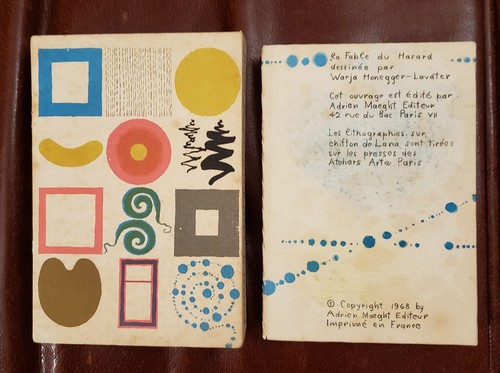 La Fable du Hasard
dessinée par
Warja Honegger-Lavater
Cet ouvrage est édité par
Adrien Maeght Editeur
42 rue du Bac Paris VII
Les lithographies sur
chiffon de Lana sont tirées
sur les presses des
Ateliers Arte Paris
© Copyright 1968 by
Adrien Maeght Editeur
Imprimé en France